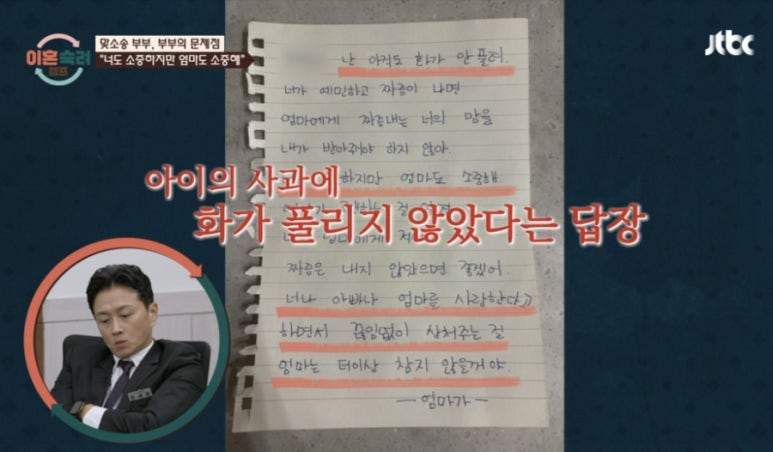 이혼숙려
캠프
맞소송 부부, 부부의 문제점
"너도 소중하지만 엄마도 소중해"
jtbc
난 아직도 화가 안 풀려.
너가 예민하고 짜증이 나면
엄마에게 짜증내는 너의 맘을
내가 받아줘야 하지 않아.
하지만 엄마도 소중해
아이의 사과에
화가 풀리지 않았다는 답장
짜증은 내지 않았으면 좋겠어.
너나 아빠나 엄마를 사랑한다고
하면서 끊임없이 상처주는 걸
엄마는 더이상 참지 않을거야.
- 엄마가 -